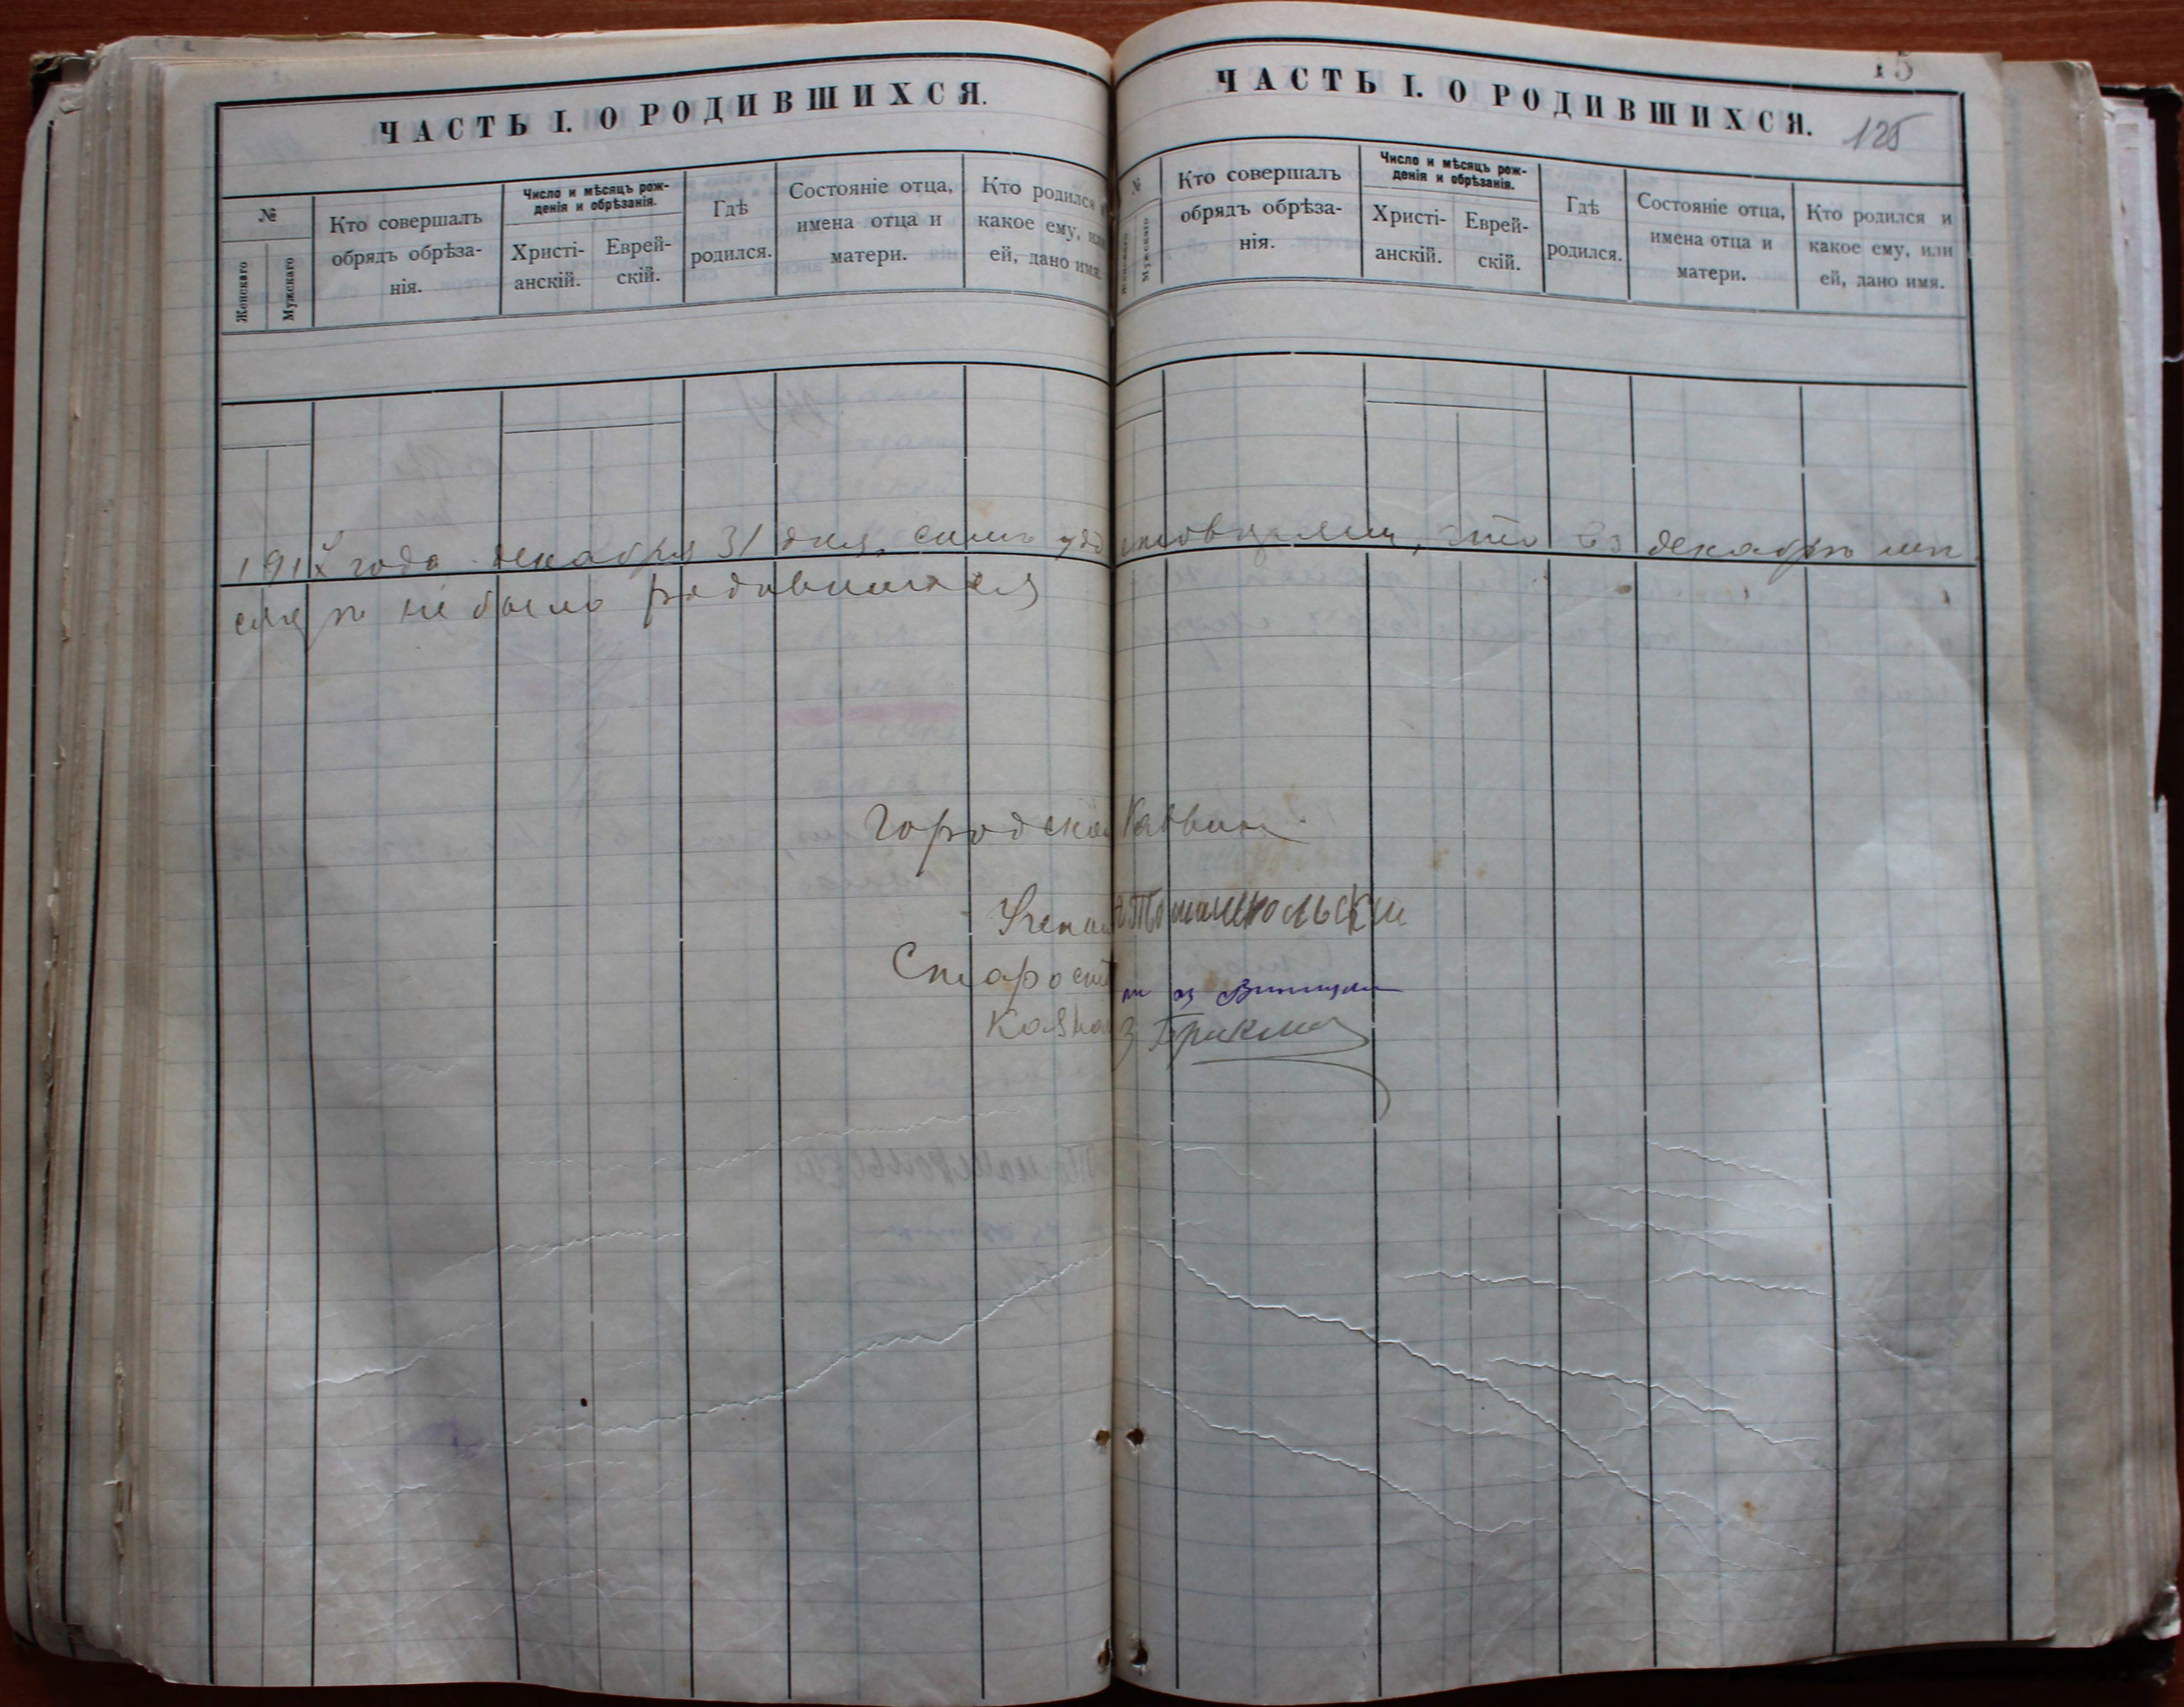 ЧАСТЬ I. О РОДИВШИХСЯ.
№
Женскаго
Мужскаго
Кто совершалъ
обрядъ обрѣза-
нія.
Число и мѣсяцъ рож-
денія и обрѣзанія.
Христі-
анскій.
Еврей-
скій.
Гдѣ
родился.
Состояніе отца,
имена отца и
матери.
Кто родился и
какое ему, или
ей, дано имя.
15
ЧАСТЬ I. О РОДИВШИХСЯ.
125
№
Женскаго
Мужскаго
Кто совершалъ
обрядъ обрѣза-
нія.
Число и мѣсяцъ рож-
денія и обрѣзанія.
Христі-
анскій.
Еврей-
скій.
Гдѣ
родился.
Состояніе отца,
имена отца и
матери.
Кто родился и
какое ему, или
ей, дано имя.
года декабря 31 дня, симъ удостовѣряемъ, что въ декабрѣ мѣ
сяцѣ не было родившихся
Городской Раввинъ
Ученый
Старости
Казнач